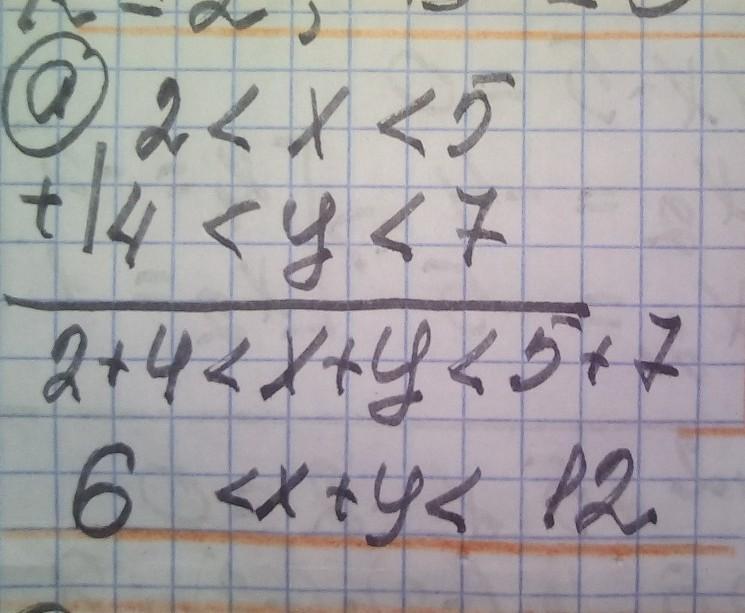 а 2 < x < 5
+| 4 < y < 7
2+4 < x+y < 5+7
6 < x+y < 12